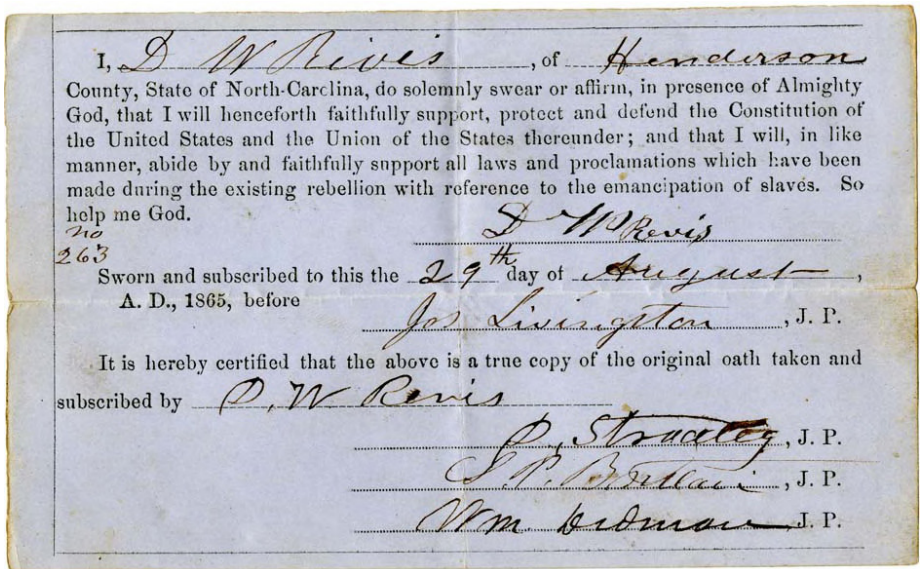 I, D W Rivis, of Henderson
County, State of North-Carolina, do solemnly swear or affirm, in presence of Almighty
God, that I will henceforth faithfully support, protect and defend the Constitution of
the United States and the Union of the States thereunder; and that I will, in like
manner, abide by and faithfully support all laws and proclamations which have been
made during the existing rebellion with reference to the emancipation of slaves. So
help me God.
D W Revis
no
263
Sworn and subscribed to this the 29th day of August,
A. D., 1865, before
Jos Livingston, J. P.
It is hereby certified that the above is a true copy of the original oath taken and
subscribed by D. W Revis
J. P.
J. P.
Wm. J. P.